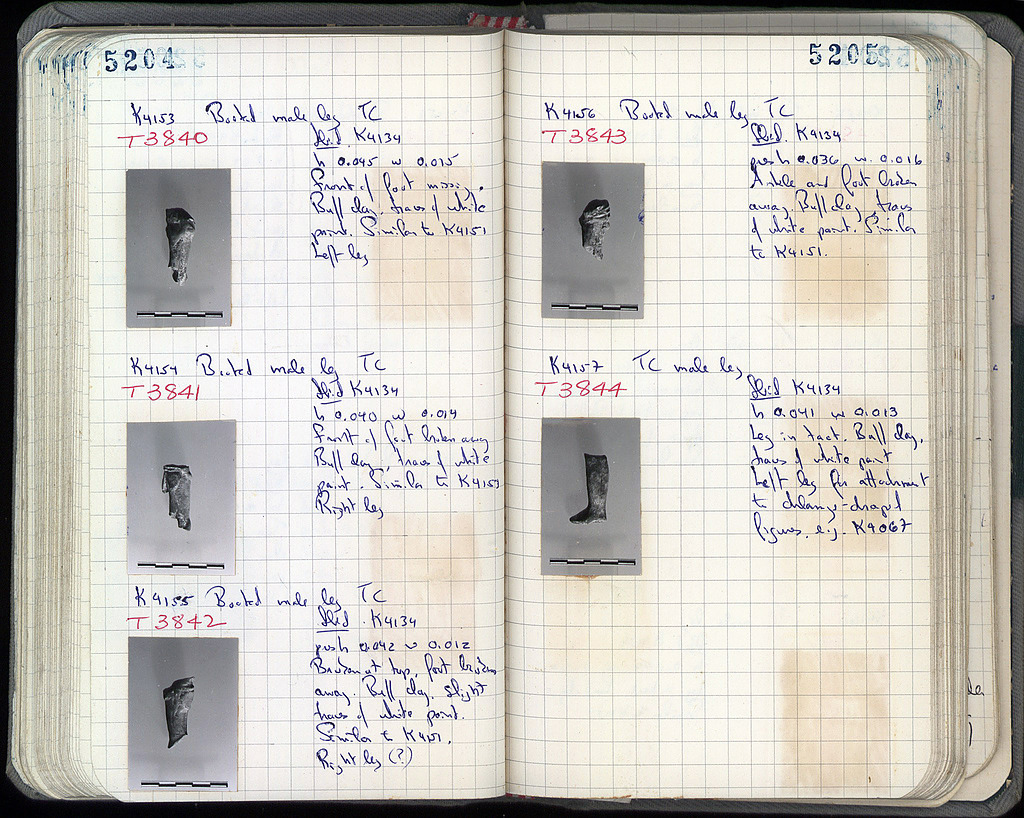 5204
K4153 Booted male leg TC
T3840
Ibid. K4134
h 0.045 w 0.015
Front of foot missing.
Buff clay, traces of white
paint. Similar to K4151
Left leg
K4154 Booted male leg TC
T3841
Ibid K4134
h 0.040 w 0.014
Front of foot broken away
Buff clay, traces of white
paint. Similar to K4153
Right leg
K4155 Booted male leg TC
T3842
Ibid. K4134
pres h 0.042 w 0.012
Broken at top, foot broken
away. Buff clay, slight
traces of white paint.
Similar to K4151.
Right leg (?)
5205
K4156 Booted male leg TC
T3843
Ibid. K4134
pres h 0.036 w. 0.016
Ankle and foot broken
away. Buff clay, traces
of white paint. Similar
to K4151.
K4157 TC male leg
T3844
Ibid K4134
h 0.041 w 0.013
Leg in tact. Buff clay,
traces of white paint
Left leg for attachment
to chlamys-draped
figures. e.g. K4067